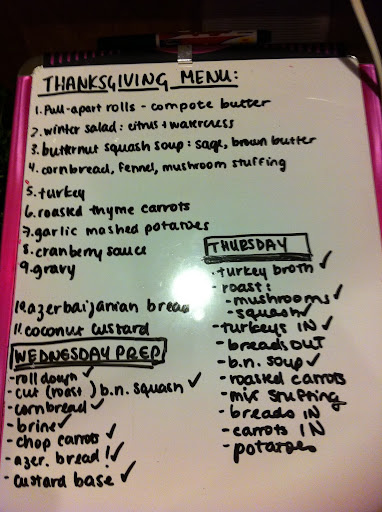 THANKSGIVING MENU:
1. Pull-apart rolls - compote butter
2. winter salad: citrus + watercress
3. butternut squash soup: sage, brown butter
4. cornbread, fennel, mushroom stuffing
5. turkey
6. roasted thyme carrots
7. garlic mashed potatoes
8. cranberry sauce
9. gravy
10. azerbaijanian bread
11. coconut custard
WEDNESDAY PREP
- roll dough ✓
- cut (roast) b.n. squash ✓
- cornbread ✓
- brine ✓
- chop carrots ✓
- azer. bread! ✓
- custard base ✓
THURSDAY
- turkey broth ✓
- roast:
- mushrooms ✓
- squash ✓
- turkeys IN ✓
- breads out
- b.n. soup ✓
- roasted carrots
- mix stuffing
- breads IN
- carrots IN
- potatoes